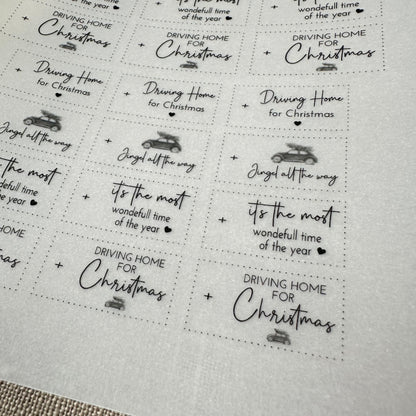 wondefull time
of the year
it's the most
wondefull time
of the year
DRIVING HOME
FOR
Christmas
DRIVING HOME
FOR
Christmas
DRIVING HOME
FOR
Christmas
Driving Home
for Christmas
Driving Home
for Christmas
Driving Home
for Christmas
Jingel all the way
Jingel all the way
Jingel all the way
the most
time
of the year
it's the most
wondefull time
of the year
it's the most
wondefull time
of the year
HOME
DRIVING HOME
FOR
Christmas
DRIVING HOME
FOR
Christmas